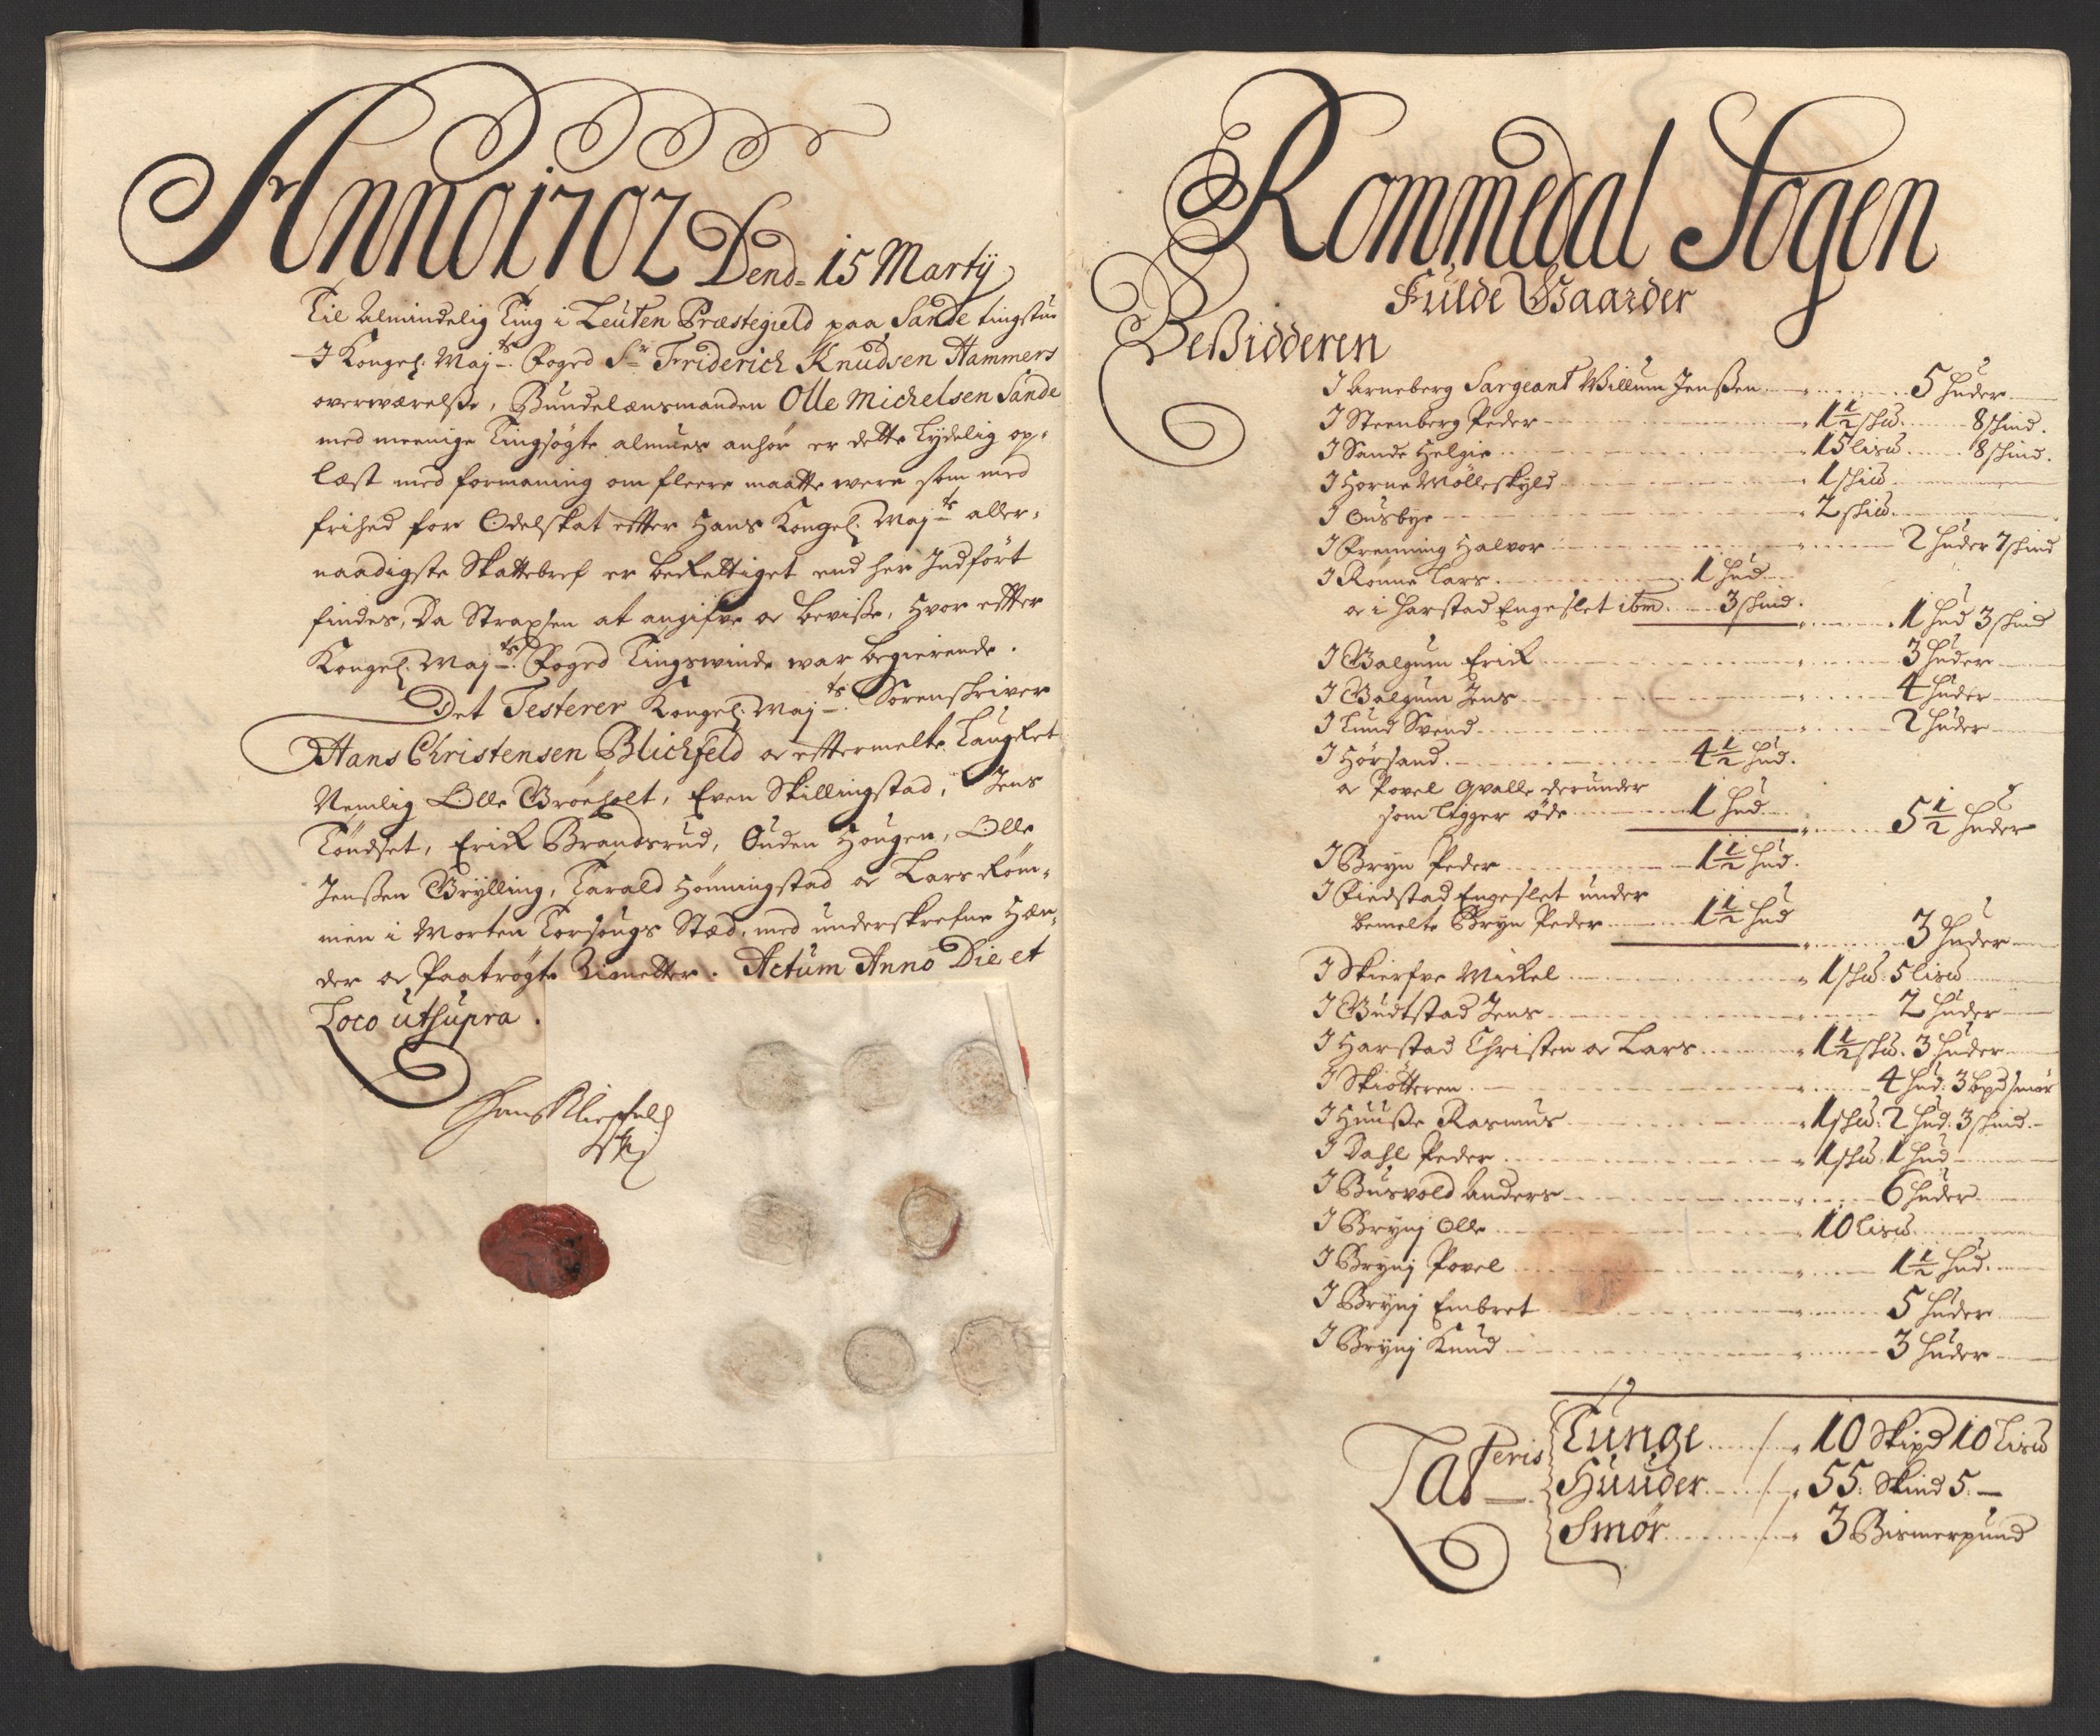 Anno 1702 Dend= 15 Martÿ
Til Almindelig Ting i Leuten Præstegield paa Sande tingstue
I Kongel: Maj<sup>ts</sup>: Foged S<sup>r</sup> Friderich Knudsen Hammers
overwærelsse, Bundelænsmanden Olle Michelsen Sande
med meenige Tingsøgte almues anhør er dette Tydelig op=
læst med formaning om fleere maatte were som med
frihed for Odelskat effter Hans Kongel: Maj<sup>ts</sup> aller=
naadigste Skattebref er berettiget end her Indført
findes, Da Straxsen at angifve oc bevisse, Hvor effter
Kongel: Maj<sup>ts</sup>: Foged Tingswinde war begierende.
Det Testerer Kongel: Maj<sup>ts</sup>: Sorenschriver
Hans Christensen Blichfeld oc efftermelte Laugret
Nemlig Olle Grönholt, Even Skillingstad, Jens
Töndset, Erick Brandsrud, Ouden Hougen, Olle
Jenssen Grÿlling, Tarald Hönningstad oc Lars Röm=
mien i Morten Torhougs Stæd, med underskrefne Hæn=
der oc Paatrögte Zignetter. Actum Anno Die et
Loco utsupra.
Hans Blichfeld
I Rommedal Sogen
Fulde Gaarder
Beßidderen
I Arneberg Sargeant Willum Jenßen 5 huder
I Steenberg Peder 1½ schũ. 8 schind.
I Sande Helgie 15 lisũ 8 schind.
I Horne Mölleskyld 1 schiũ
I Ousbye 2 schiũ.
I Frenning Halvor 2 huder 7 schind
I Rönne Lars 1 hud
oc i Harstad Engeslet ibm. 3 schind. 1 hud 3 schind
I Galgum Erick 3 huder
I Galgum Jens 4 huder
I Lund Svend 2 huder
I Hörsand 4½ hud.
oc Povel Qvalle derunder
som ligger öde 1 hud 5½ huder
I Bryn Peder 1½ hud.
I Fiedstad Engeslet under
bemelte Bryn Peder 1½ hud 3 huder
I Skierfve Mickel 1 schũ: 5 lisũ
I Gudtstad Jens 2 huder
I Harstad Christen oc Lars 1½ schũ. 3 huder
I Skiötteren 4 hud: 3 bpd smör
I Huuße Rasmus 1 schũ: 2 hud: 3 schind.
I Dahl Peder 1 schũ. 1 hud
I Busvold Anders 6 huder
I Brynj Olle 10 lisũ
I Brynj Povel 1½ hud.
I Brynj Embret 5 huder
I Brynj Knud 3 huder
Lateris
Tunge 10 Skipd 10 Lisũ
Huuder 55: Skind 5.
Smör 3 Bismerpund